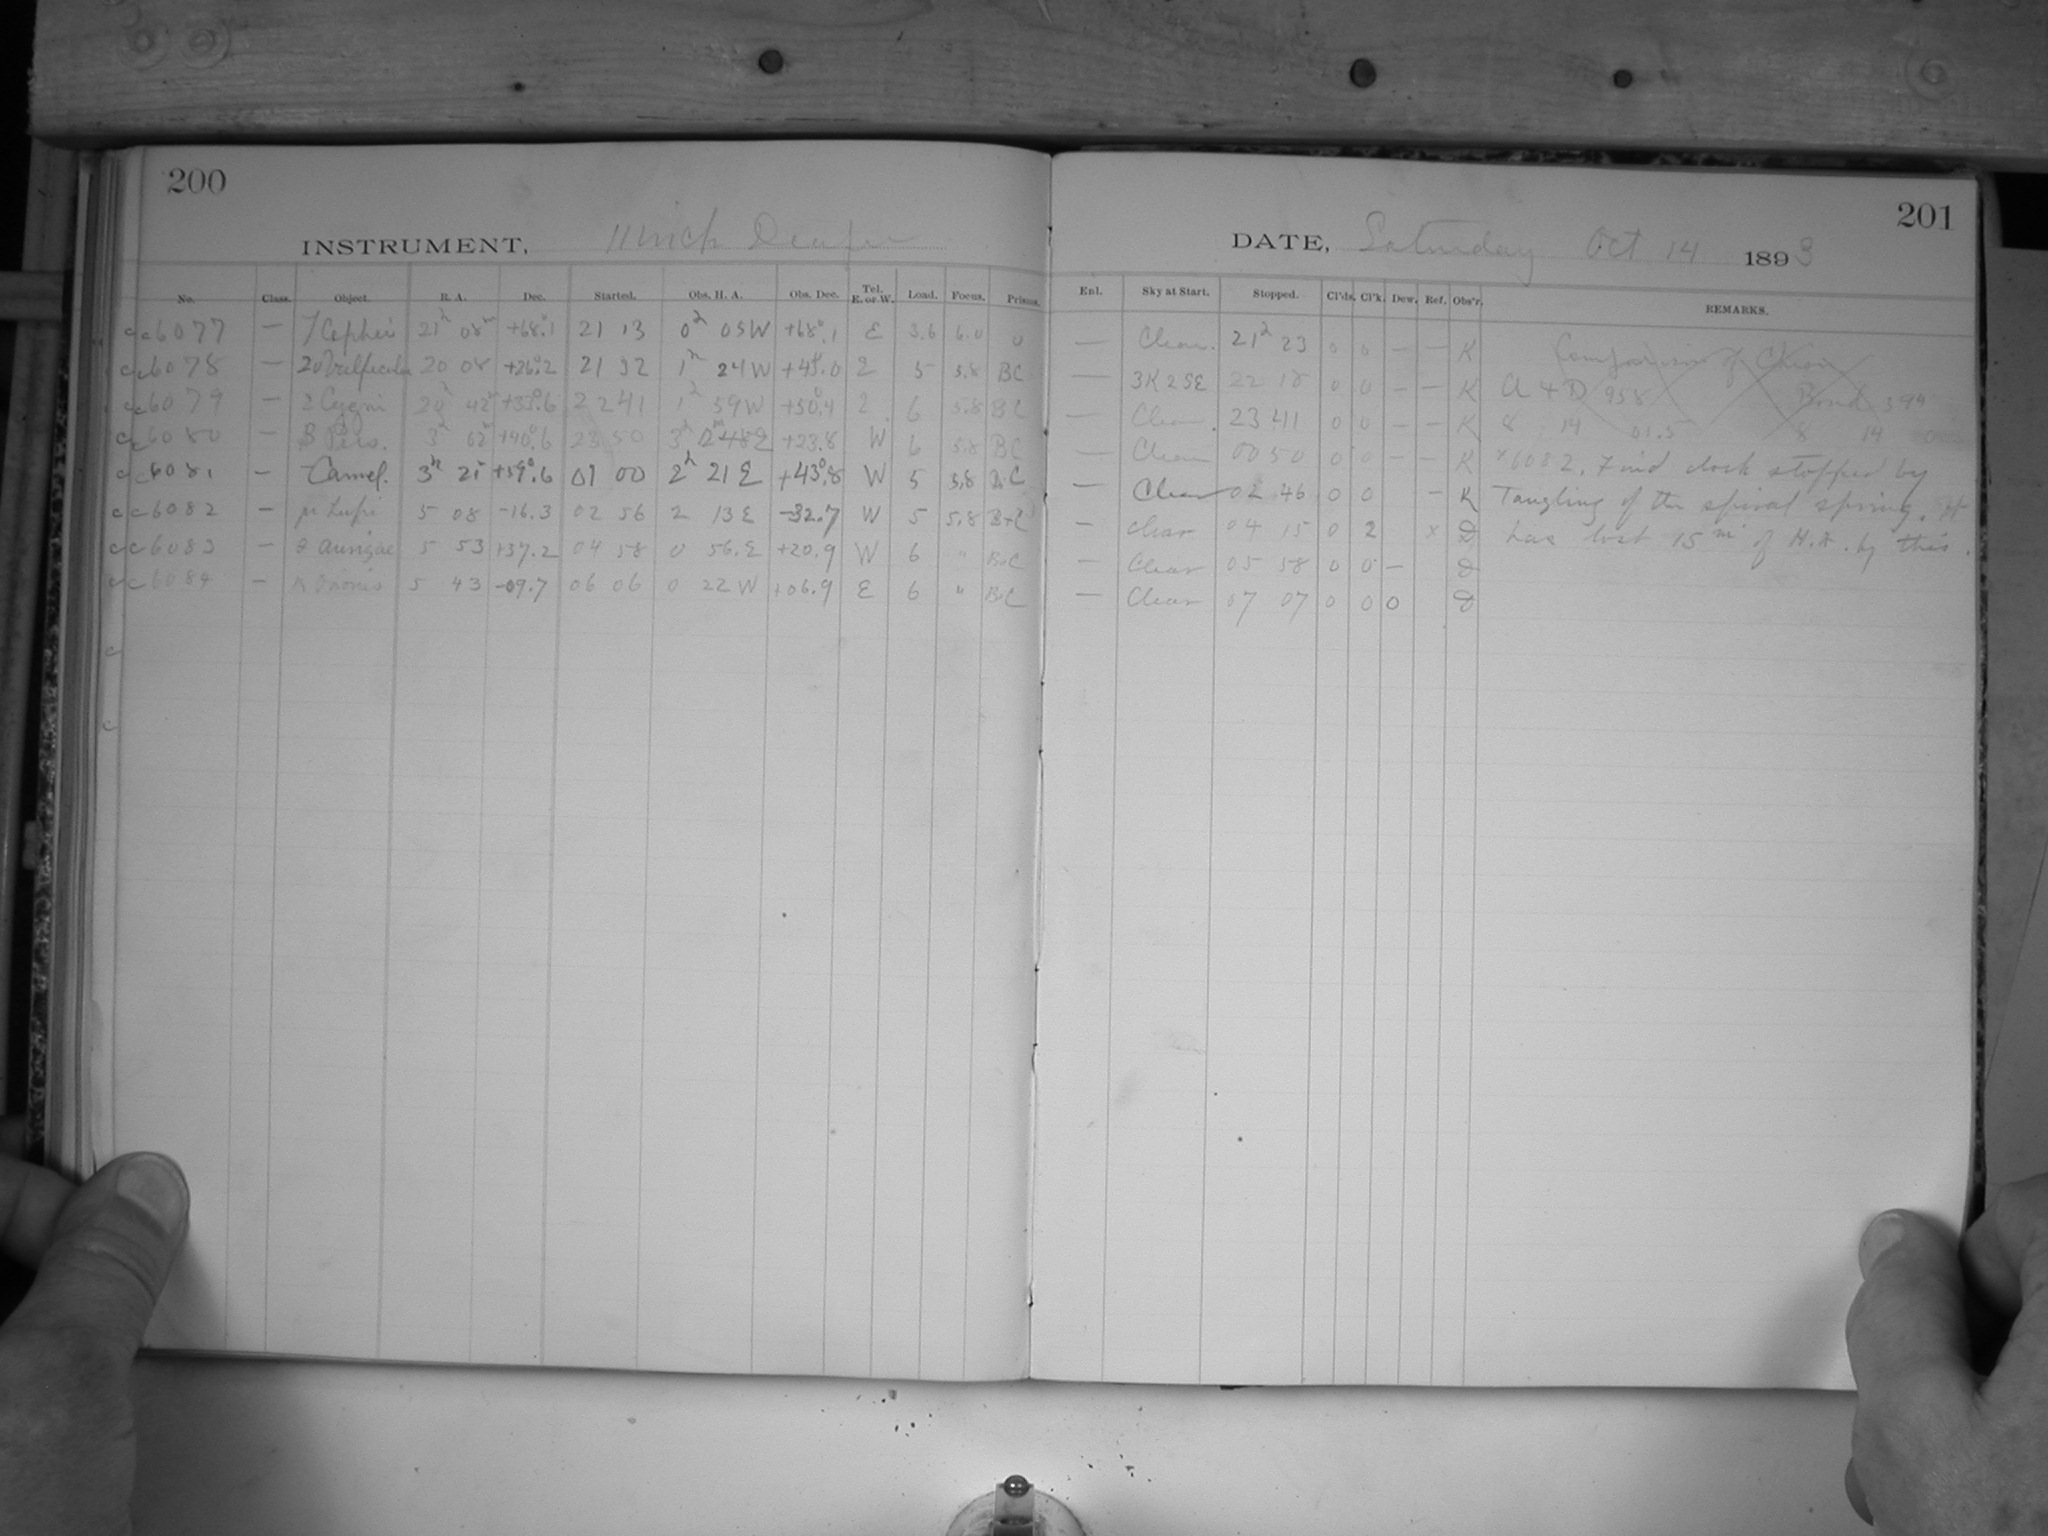 200
INSTRUMENT, 11 inch Draper
No. Class. Object. R. A. Dec. Started. Obs. H. A. Obs. Dec. Tel. E. or W. Load. Focus. Prisms.
c 6077 — Cephei 21h 08m +68°.1 21 13 0h 05W +68°.1 E 3.6 6.0 0
c 6078 — 20 Vulpecula 20 08 +26°.2 21 32 1h 24W +45°.0 E 5 5.8 BC
c 6079 — Cygni 20h 42m +33°.6 22 41 1h 59W +50°.4 6 5.8 BC
c 6080 — β Pers. 3h 02m +40°.6 23 50 3h +23.8 W 6 5.8 BC
c 6081 — Camel. 3h 21m +59°.6 01 00 2h 21E +43°.8 W 5 5.8 BC
c 6082 — μ 5 08 -16.3 02 56 2 13E -32.7 W 5 5.8 B+C
c 6083 — θ Aurigae 5 53 +37.2 04 58 0 56.E +20.9 W 6 " B+C
c 6084 — κ Orionis 5 43 -09.7 06 06 0 22W +06.9 E 6 " B+C
c
c
201
DATE, Saturday Oct 14 1893
Enl. Sky at Start. Stopped. Cl'ds. Cl'k. Dew. Ref. Obs'r. REMARKS.
— Clear. 21h 23 0 0 — — K Comparison of Chron
— 3K2SE 22 18 0 0 — — K A & D 958 Bond 394
— Clear. 23 41 0 0 — — K 8 14 01.5 8 14
— Clear 00 50 0 0 — — K x6082. Find clock stopped by
— Clear 02 46 0 0 — K Tangling of the spiral spring. It
— Clear 04 15 0 2 x D has lost 15m of H.A. by this.
— Clear 05 58 0 0 — D
— Clear 07 07 0 0 0 D